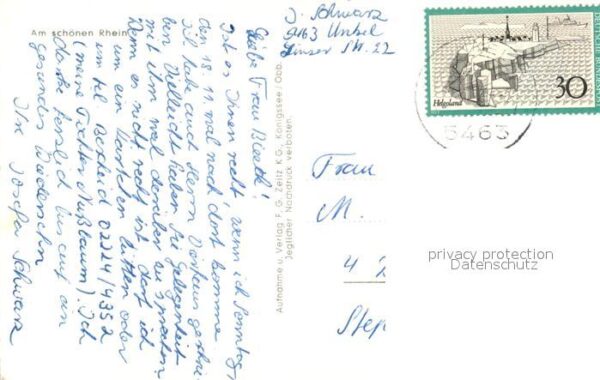 Am schönen Rhein
Liebe Frau
Ist es Ihnen recht, wenn ich Sonntag,
den 18. 11. mal nach dort komme
Ich habe auch Herrn
ben Vielleicht haben Sie Gelegenheit
mit ihm mal darüber zu sprechen
Wenn es nicht recht ist darf ich
um ein Kärtchen bitten oder
um tel. Bescheid 02224/4352
(meine Tochter Nußbaum). Ich
danke herzlich bis auf ein
gesundes Wiedersehn
Ihr Josefa Schwarz
Aufnahme u. Verlag F. G. Zeitz K G., Königssee / Obb.
Jeglicher Nachdruck verboten.
J. Schwarz
5463 Unkel
Linzer Str. 22
DEUTSCHE BUNDESPOST
Helgoland
30
5463
Frau
M.
4 2
Step
privacy protection
Datenschutz